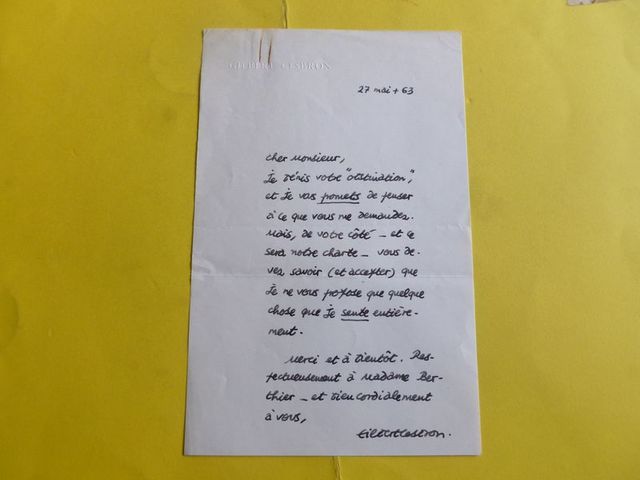 GILBERT CESBRON
27 mai + 63
Cher Monsieur,
Je bénis votre "obstination",
et je vous promets de penser
à ce que vous me demandez.
Mais, de votre côté - et ce
sera notre charte - vous de-
vez savoir (et accepter) que
je ne vous propose que quelque
chose que je sente entière-
ment.
Merci et à bientôt. Res-
pectueusement à Madame Ber-
thier - et bien cordialement
à vous,
Gilbert Cesbron.